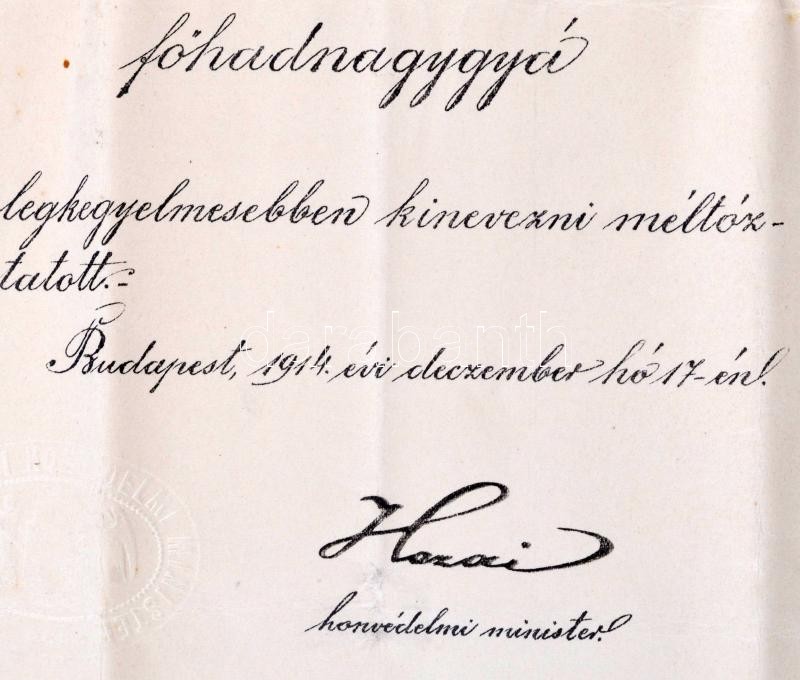 főhadnagygyá
legkegyelmesebben kinevezni méltóz-
tatott.-
Budapest, 1914. évi deczember hó 17-én.
Hazai
honvédelmi minister.
darabanth